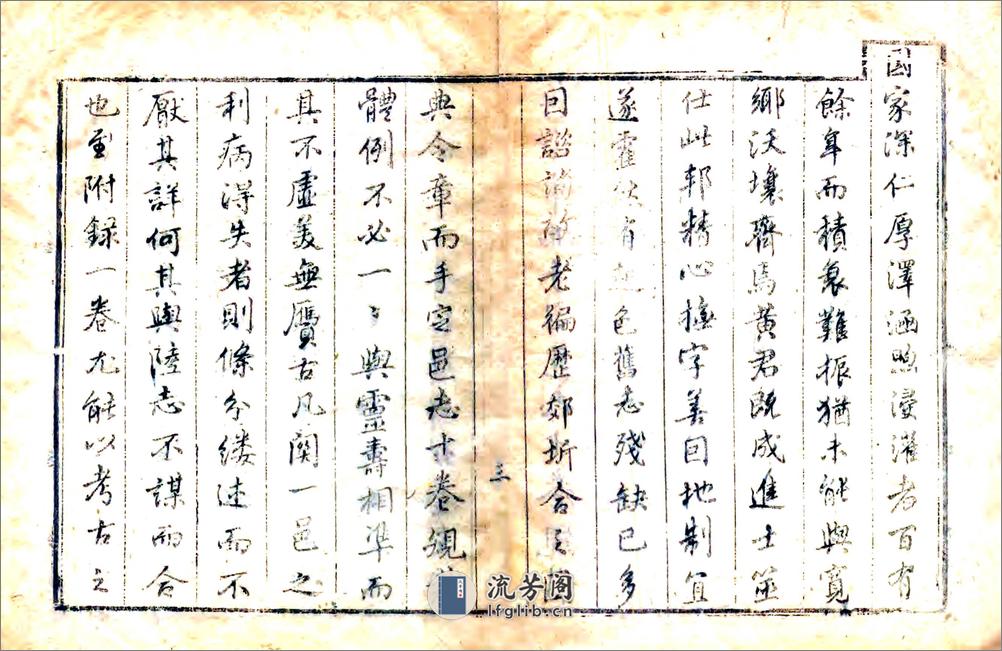 國家深仁厚澤涵煦浸灌者百有
餘年而積衰難振猶未能與寬
鄉沃壤齊焉黃君既成進士筮
仕此邦精心撫字善因地制宜
遂霍然有起色舊志殘缺已多
因諮諏故老徧歷郊圻合之
三
典令章而手定邑志十卷覌
體例不必一〻與靈壽相準而
其不虛美無贋古凡關一邑之
利病得失者則條分縷述而不
厭其詳何其與陸志不謀而合
也至附錄一卷尤能以考古之
流芳閣
lfglib.cn